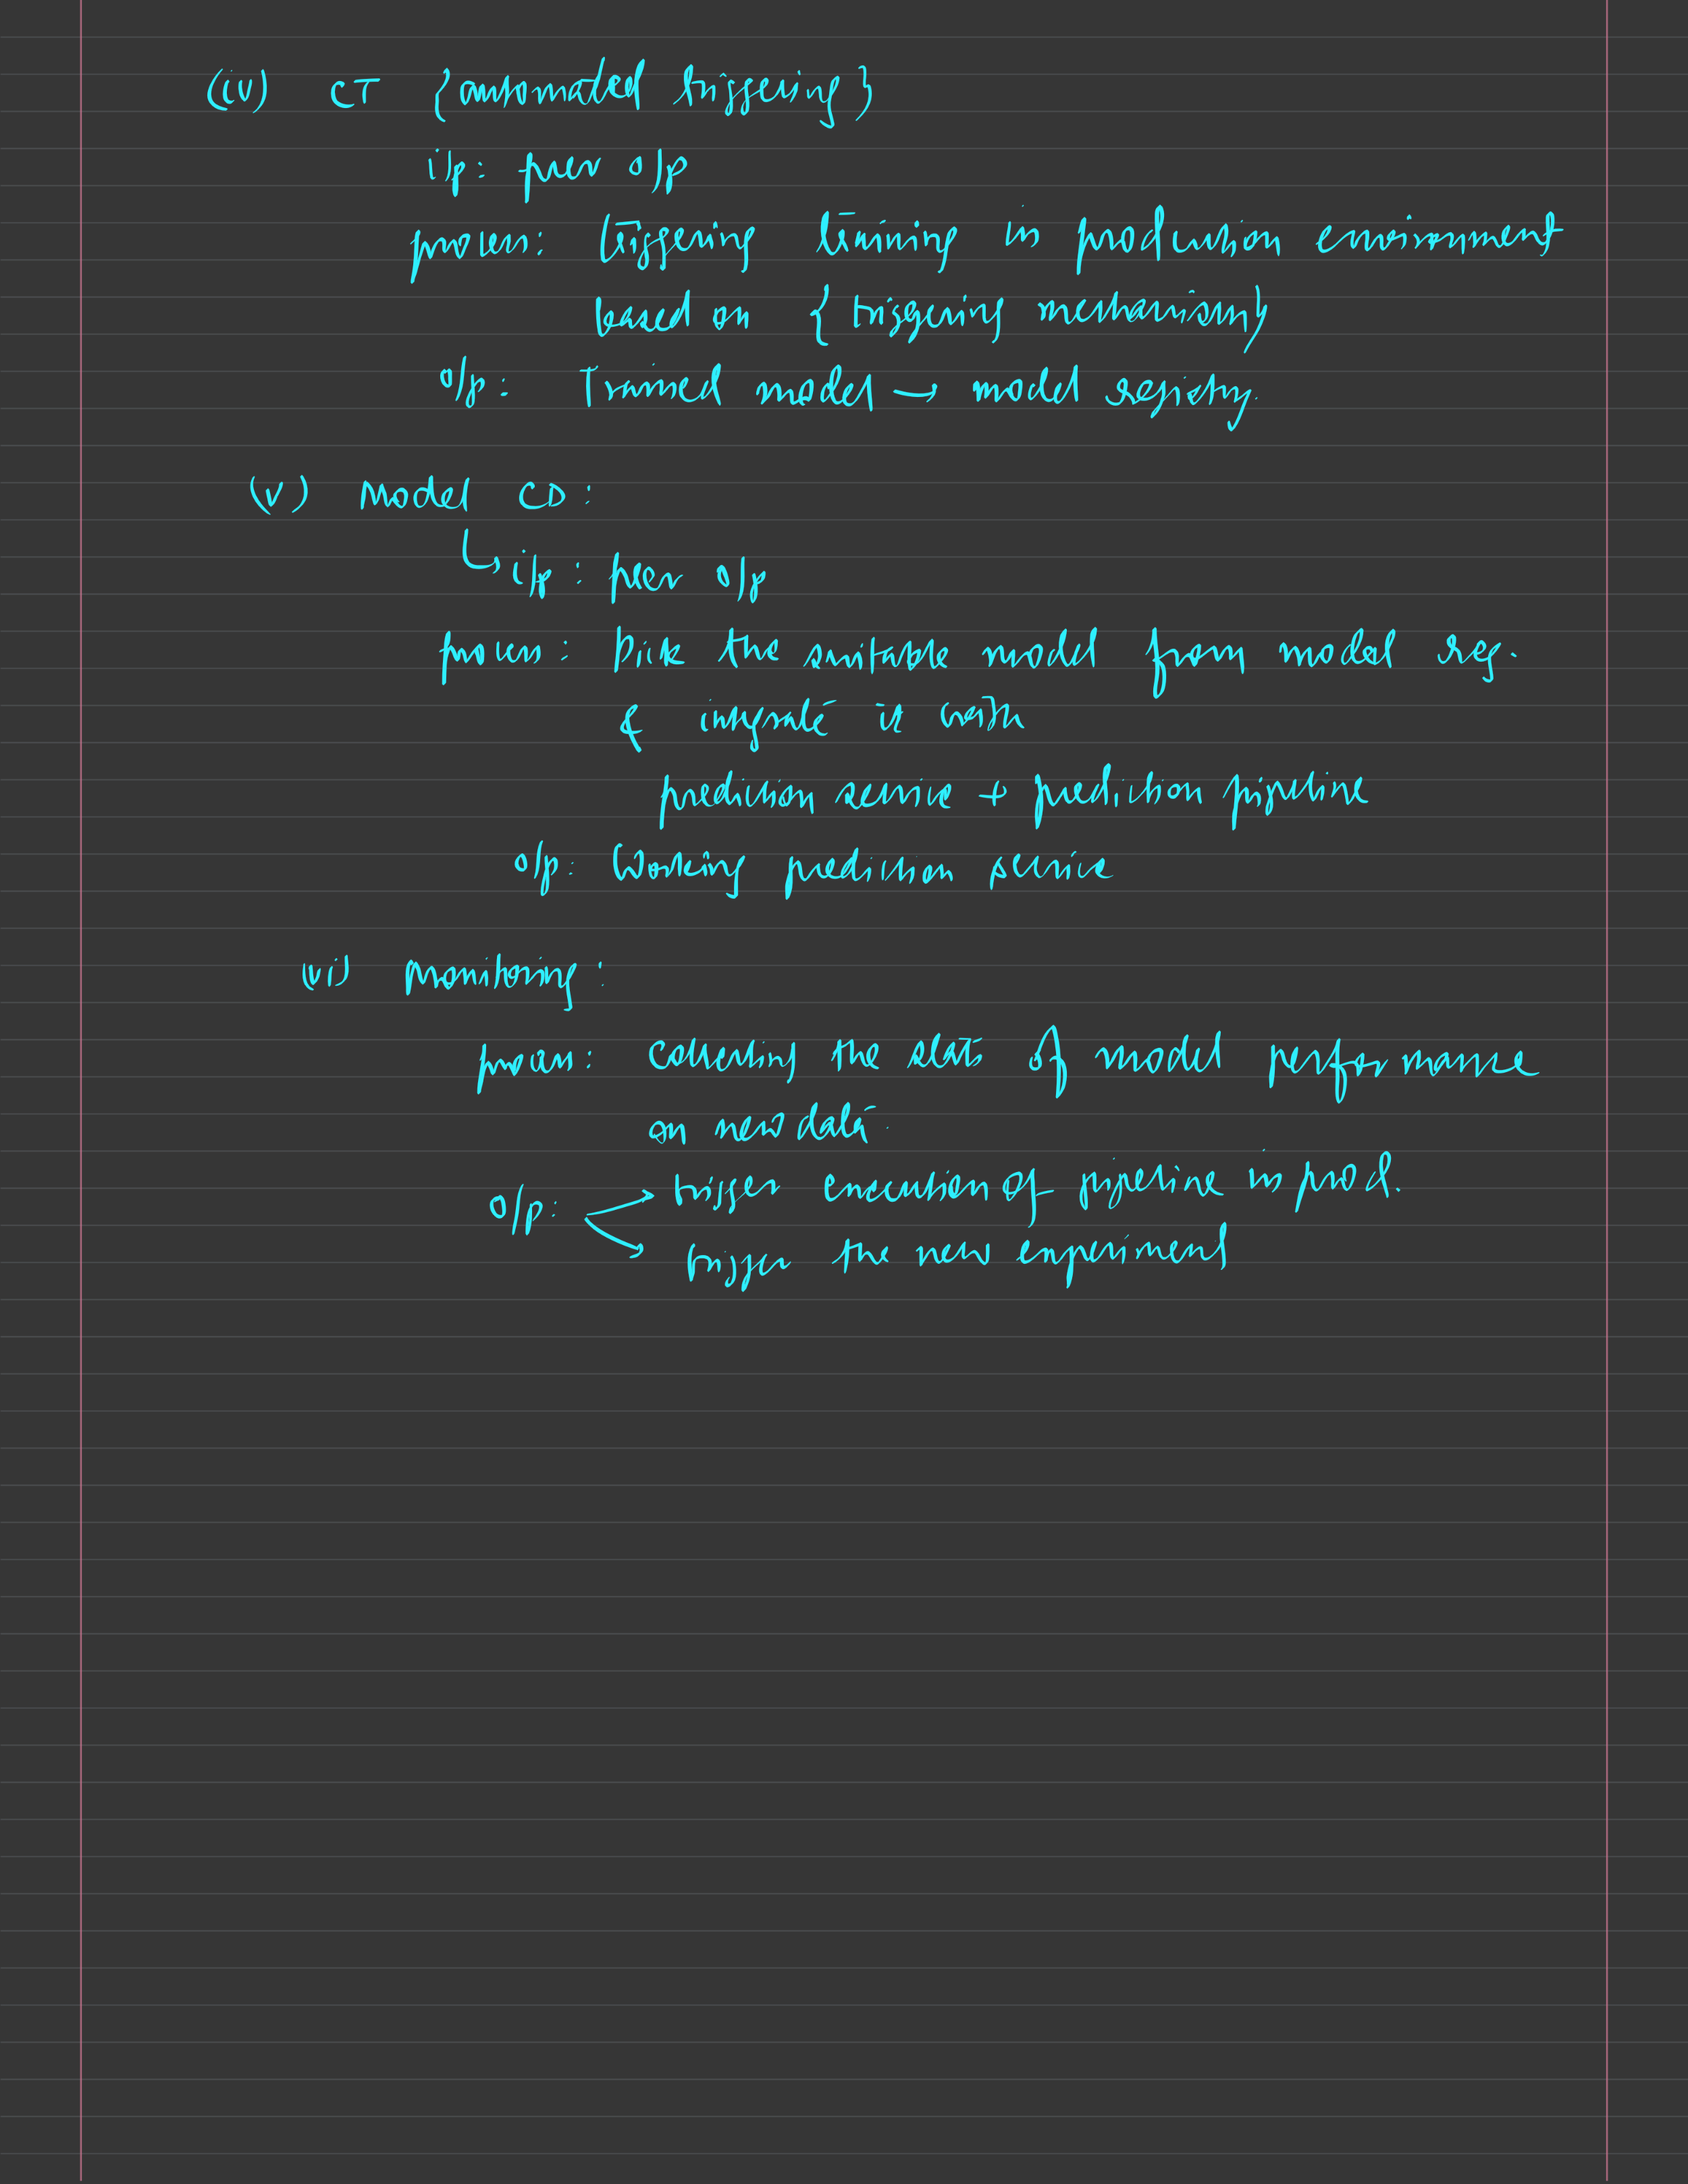 (iv) CT {automated triggering}
i/p: prev o/p
process: Triggering training in production environment
based on {triggering mechanism}
o/p: Trained model → model registry.
(v) Model CD:
↳ i/p: prev o/p
process: Pick the suitable model from model reg.
& integrate it with
prediction service + prediction pipeline
o/p: Working prediction service
(vi) Monitoring:
process: the stats of model performance
on new data.
o/p: trigger execution of pipeline in prod.
trigger the new experiment